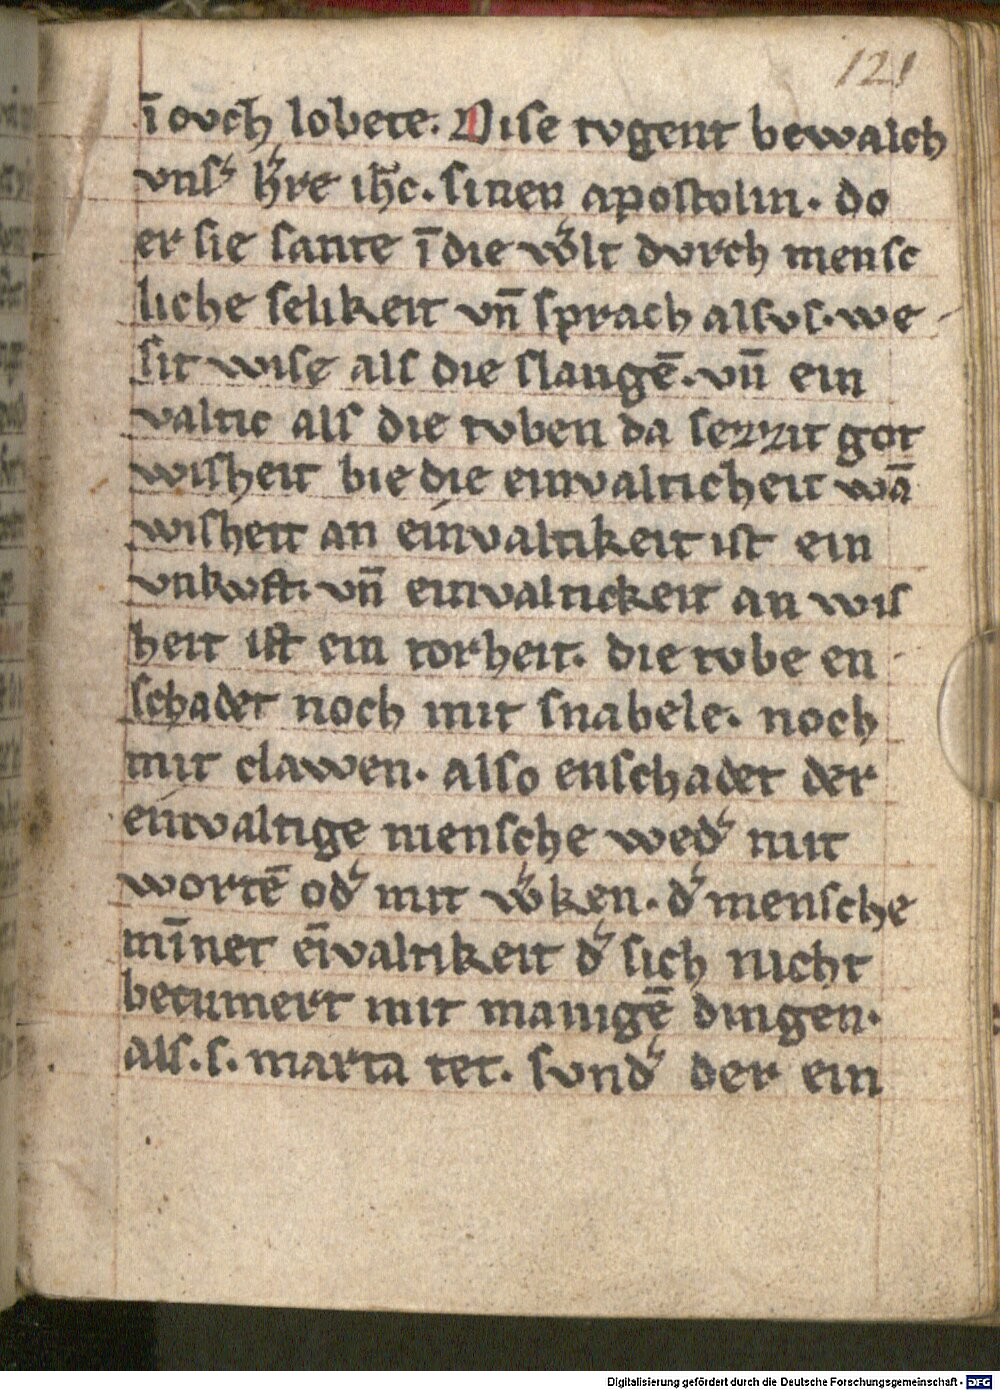 121
ī ovch lobete. Dise tvgent bewalch
vnsˀ hˀre ihc̄. sinen apostolin. do
er sie sante ī die wˀlt dvrch mensc
liche selikeit vn̄ sprach alsvs. we
sit wise als die slangē. vn̄ ein
valtic als die tvben da sezzit got
wisheit bie die einvalticheit wā
wisheit an einvaltikeit ist ein
vnkvst. vn̄ einvaltickeit an wis
heit ist ein torheit. die tvbe en
schadet noch mit snabele. noch
mit clawen. also enschadet der
einvaltige mensche wedˀ mit
wortē odˀ mit wˀken. dˀ mensche
mīnet eīvaltikeit dˀ sich nicht
becumert mit manigē dingen.
als. s. marta tet. svndˀ der ein
Digitalisierung gefördert durch die Deutsche Forschungsgemeinschaft - DFG